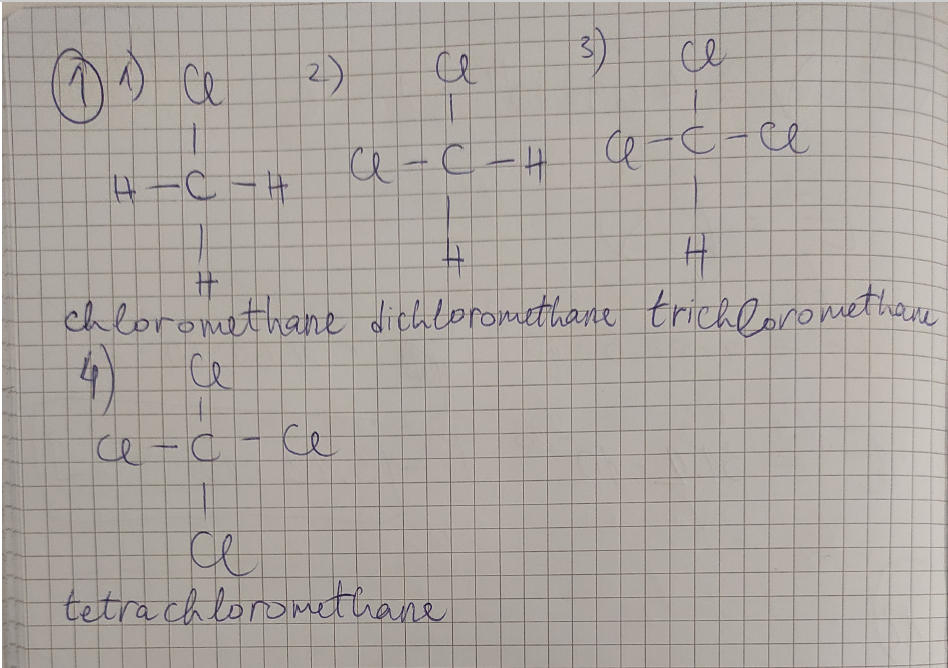 ① 1) Cl 2) Cl 3) Cl
H – C – H Cl – C – H Cl – C – Cl
H H H
chloromethane dichloromethane trichloromethane
4) Cl
Cl – C – Cl
Cl
tetrachloromethane